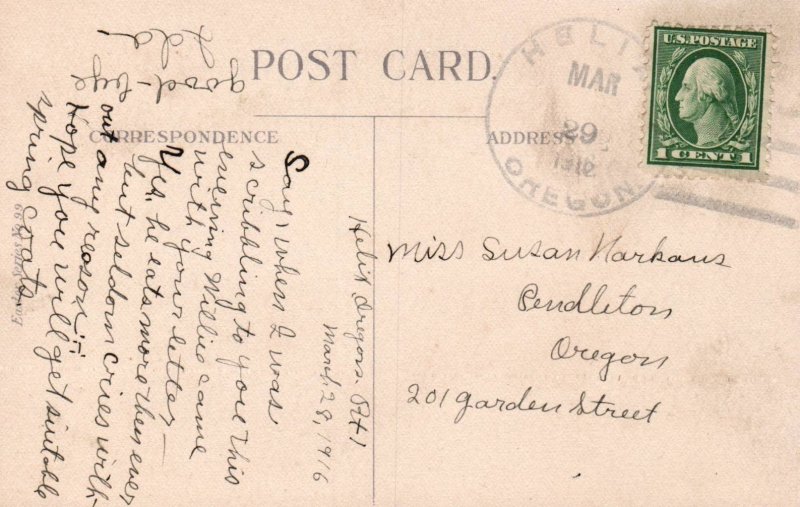 POST CARD.
CORRESPONDENCE
ADDRESS
HELIX
MAR
29
1916
OREGON
U.S. POSTAGE
1 CENT 1
Miss Susan Narkaus
Pendleton
Oregon
201 Garden Street
Helix Oregon. Rt 1
March 28, 1916
Say, when I was
scribbling to you this
evening Willie came
with your letter —
Yes, he eats more then ever
but seldom cries with-
out any reason.
Hope you will get suitable
spring coats
good-bye